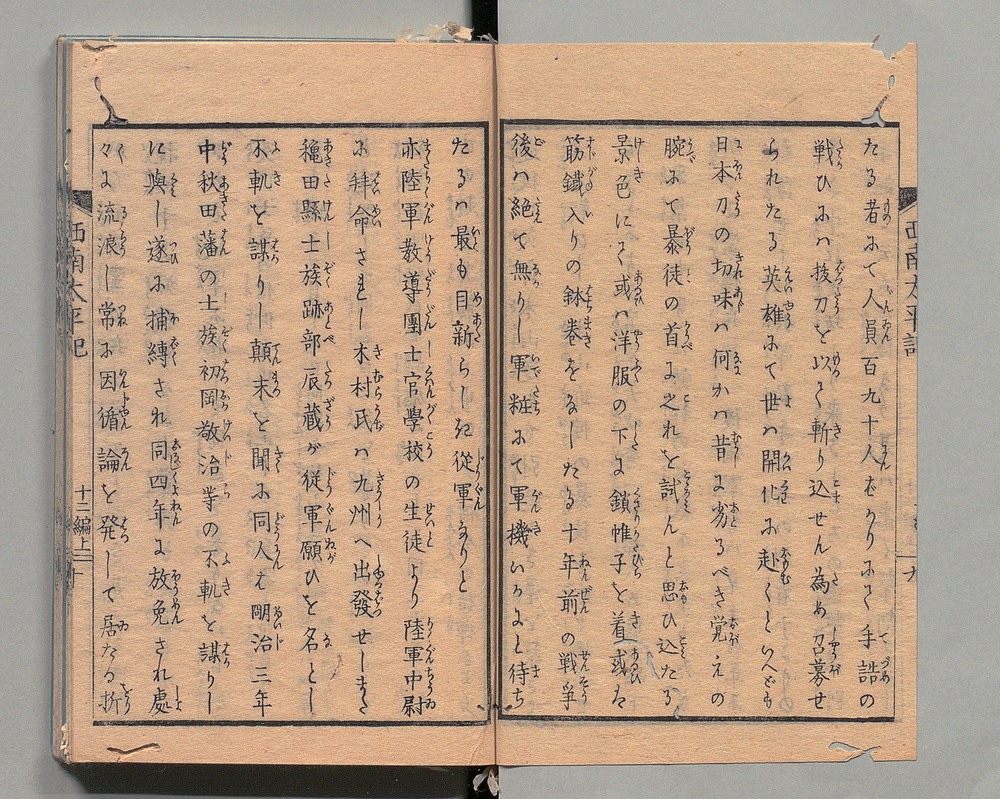 たる者にて人員百九十人ばかりにて手詰の
戦ひにハ抜刀を以て斬り込せん為め召募せ
られたる英雄にて世ハ開化に赴くといへども
日本刀の切味ハ何かハ昔に劣るべき覚えの
腕にて暴徒の首に之れを試んと思ひ込たる
景色にて或ハ洋服の下に鎖帷子を着或ハ
筋鐵入りの鉢巻をなしたる十年前の戦争
後ハ絶て無りし軍粧にて軍機いかにと待ち
西南太平記
九
たるハ最も目新らしき従軍なりと
亦陸軍教導團士官學校の生徒より陸軍中尉
に拜命されし木村氏ハ九州へ出發せしまた
穐田縣士族跡部辰蔵が従軍願ひを名とし
不軌を謀りし顛末を聞に同人は明治三年
中秋田藩の士族初岡敬治等の不軌を謀りし
に與し遂に捕縛され同四年に放免され處
々に流浪し常に因循論を発して居たる折
西南太平記
十二編上
十